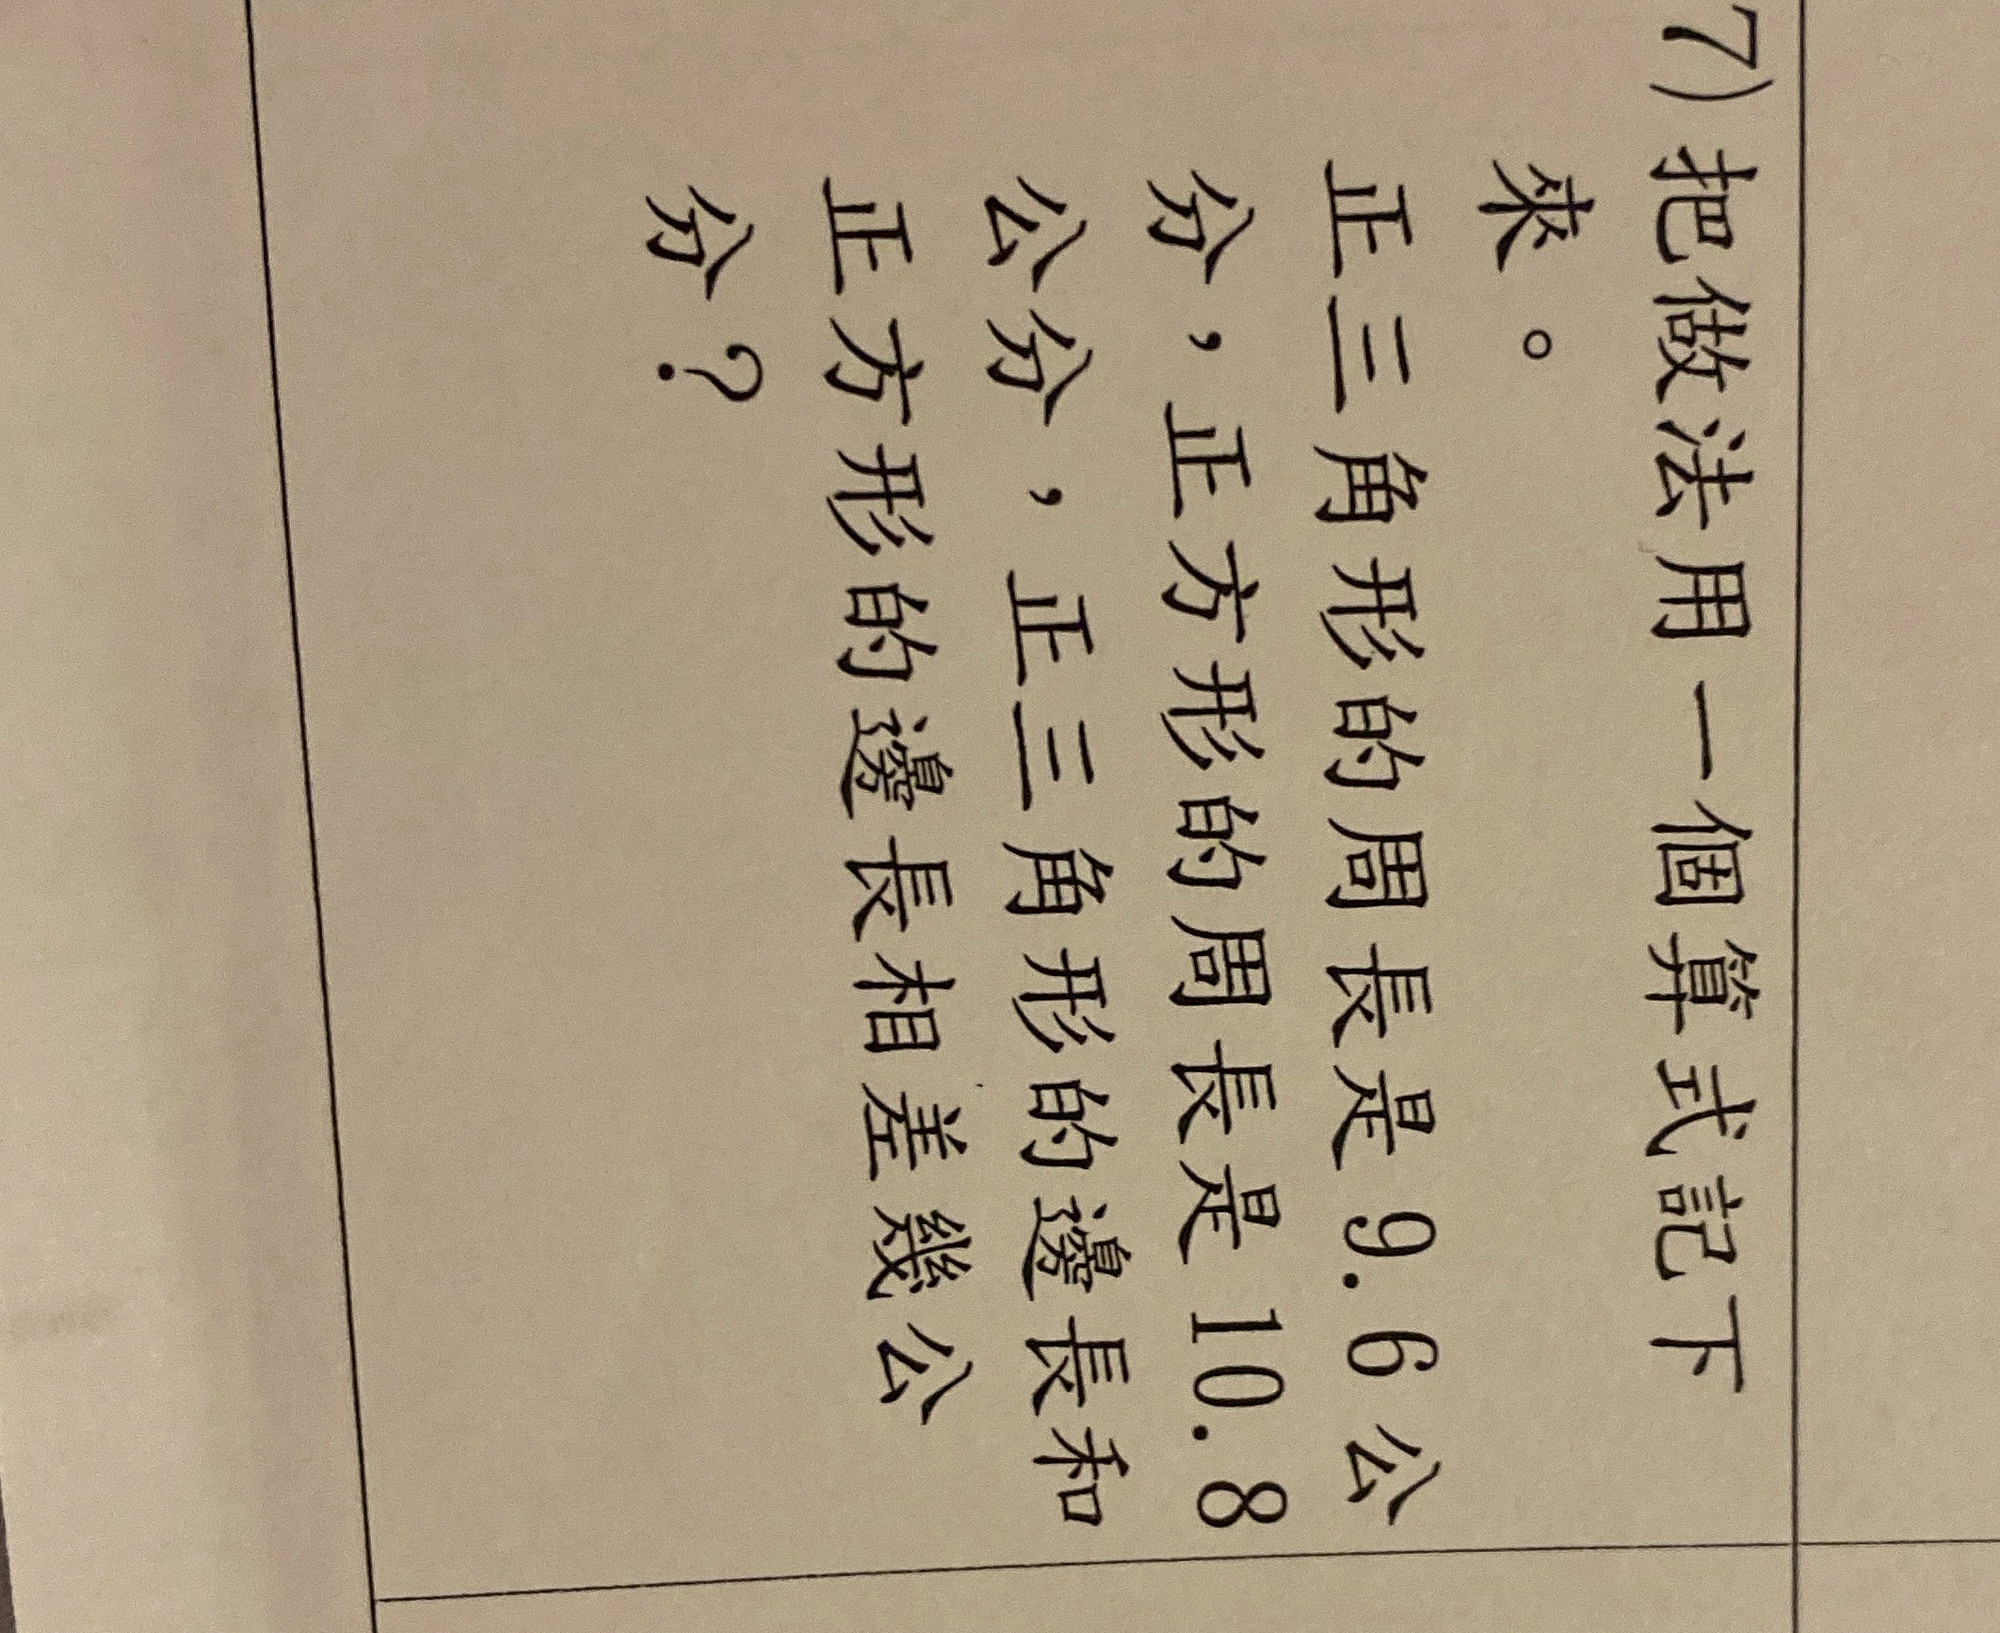 7)把做法用一個算式記下
來。
正三角形的周長是9.6公
分,正方形的周長是10.8
公分,正三角形的邊長和
正方形的邊長相差幾公
分?